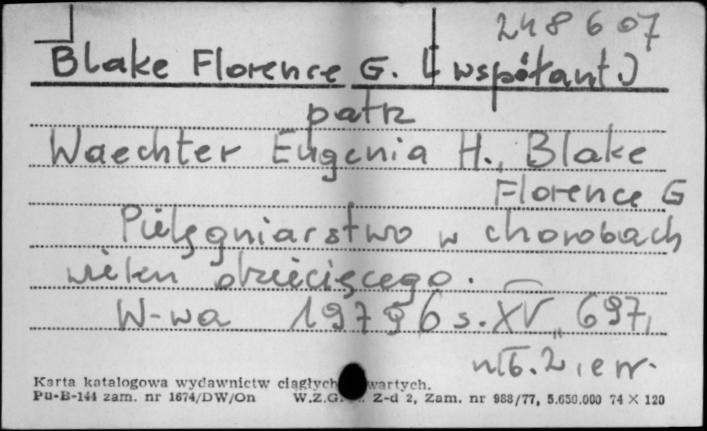 248607
Blake Florence G. [współaut.]
patrz
Waechter Eugenia H., Blake
Florence G
Pielęgniarstwo w chorobach
wieku dziecięcego.
W-wa 1979 s. XV, 697,
nlb. 2,
Karta katalogowa wydawnictw ciągłych wartych.
Pu-B-144 zam. nr 1674/DW/On W.Z.G. Z-d 2, Zam. nr 988/77, 5.650.000 74 X 120